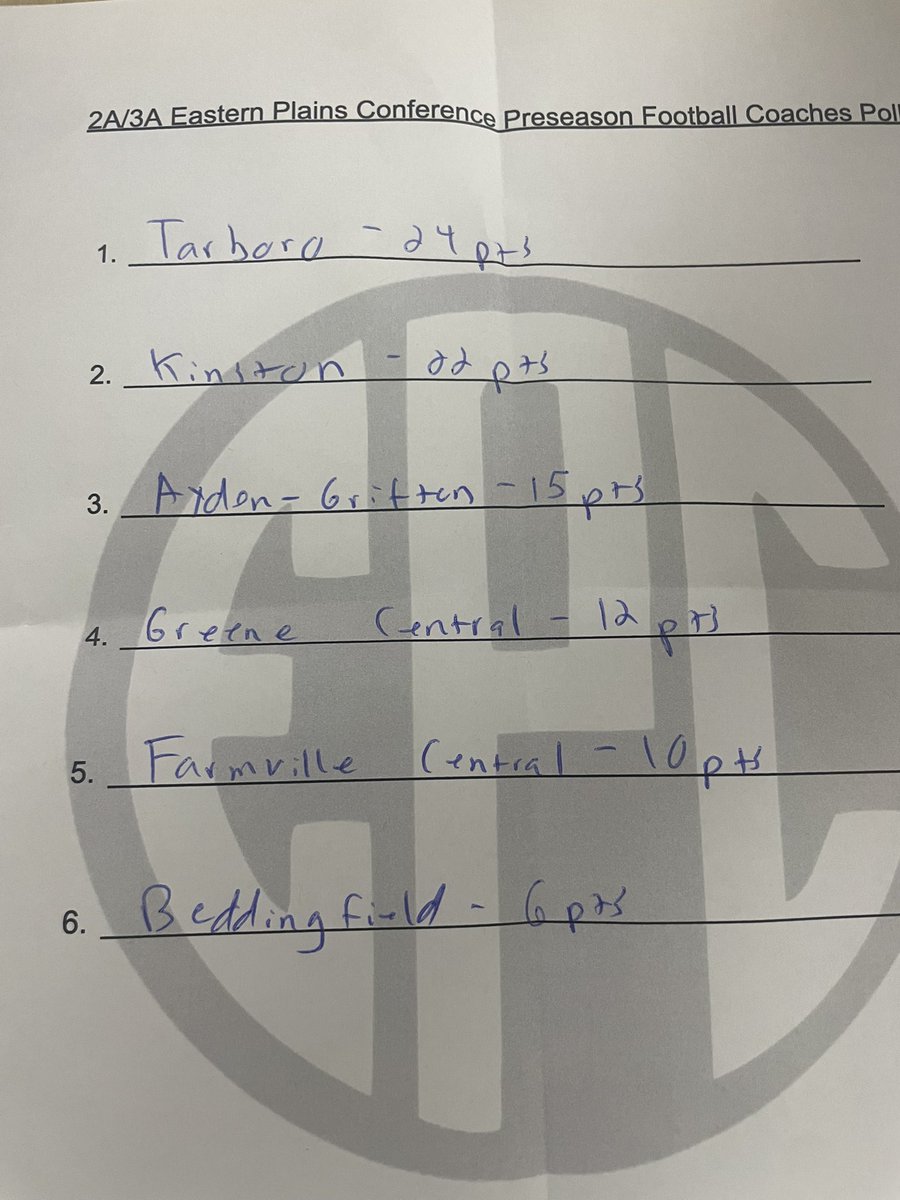 2A/3A Eastern Plains Conference Preseason Football Coaches Poll
1. Tarboro - 24 pts
2. Kinston - 22 pts
3. Aydon-Grifton - 15 pts
4. Greene Central - 12 pts
5. Farmville Central - 10 pts
6. Beddingfield - 6 pts